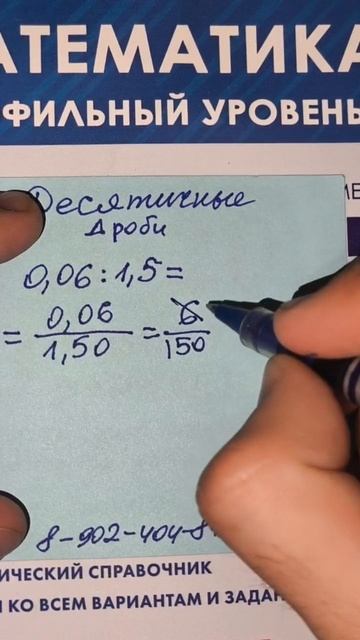 АТЕМАТИКА
ФИЛЬНЫЙ УРОВЕНЬ
Десятичные
Дроби
0,06 : 1,5 =
= 0,06/1,50 = 6/150
8-902-404-8
ИЧЕСКИЙ СПРАВОЧНИК
КО ВСЕМ ВАРИАНТАМ И ЗАДАН